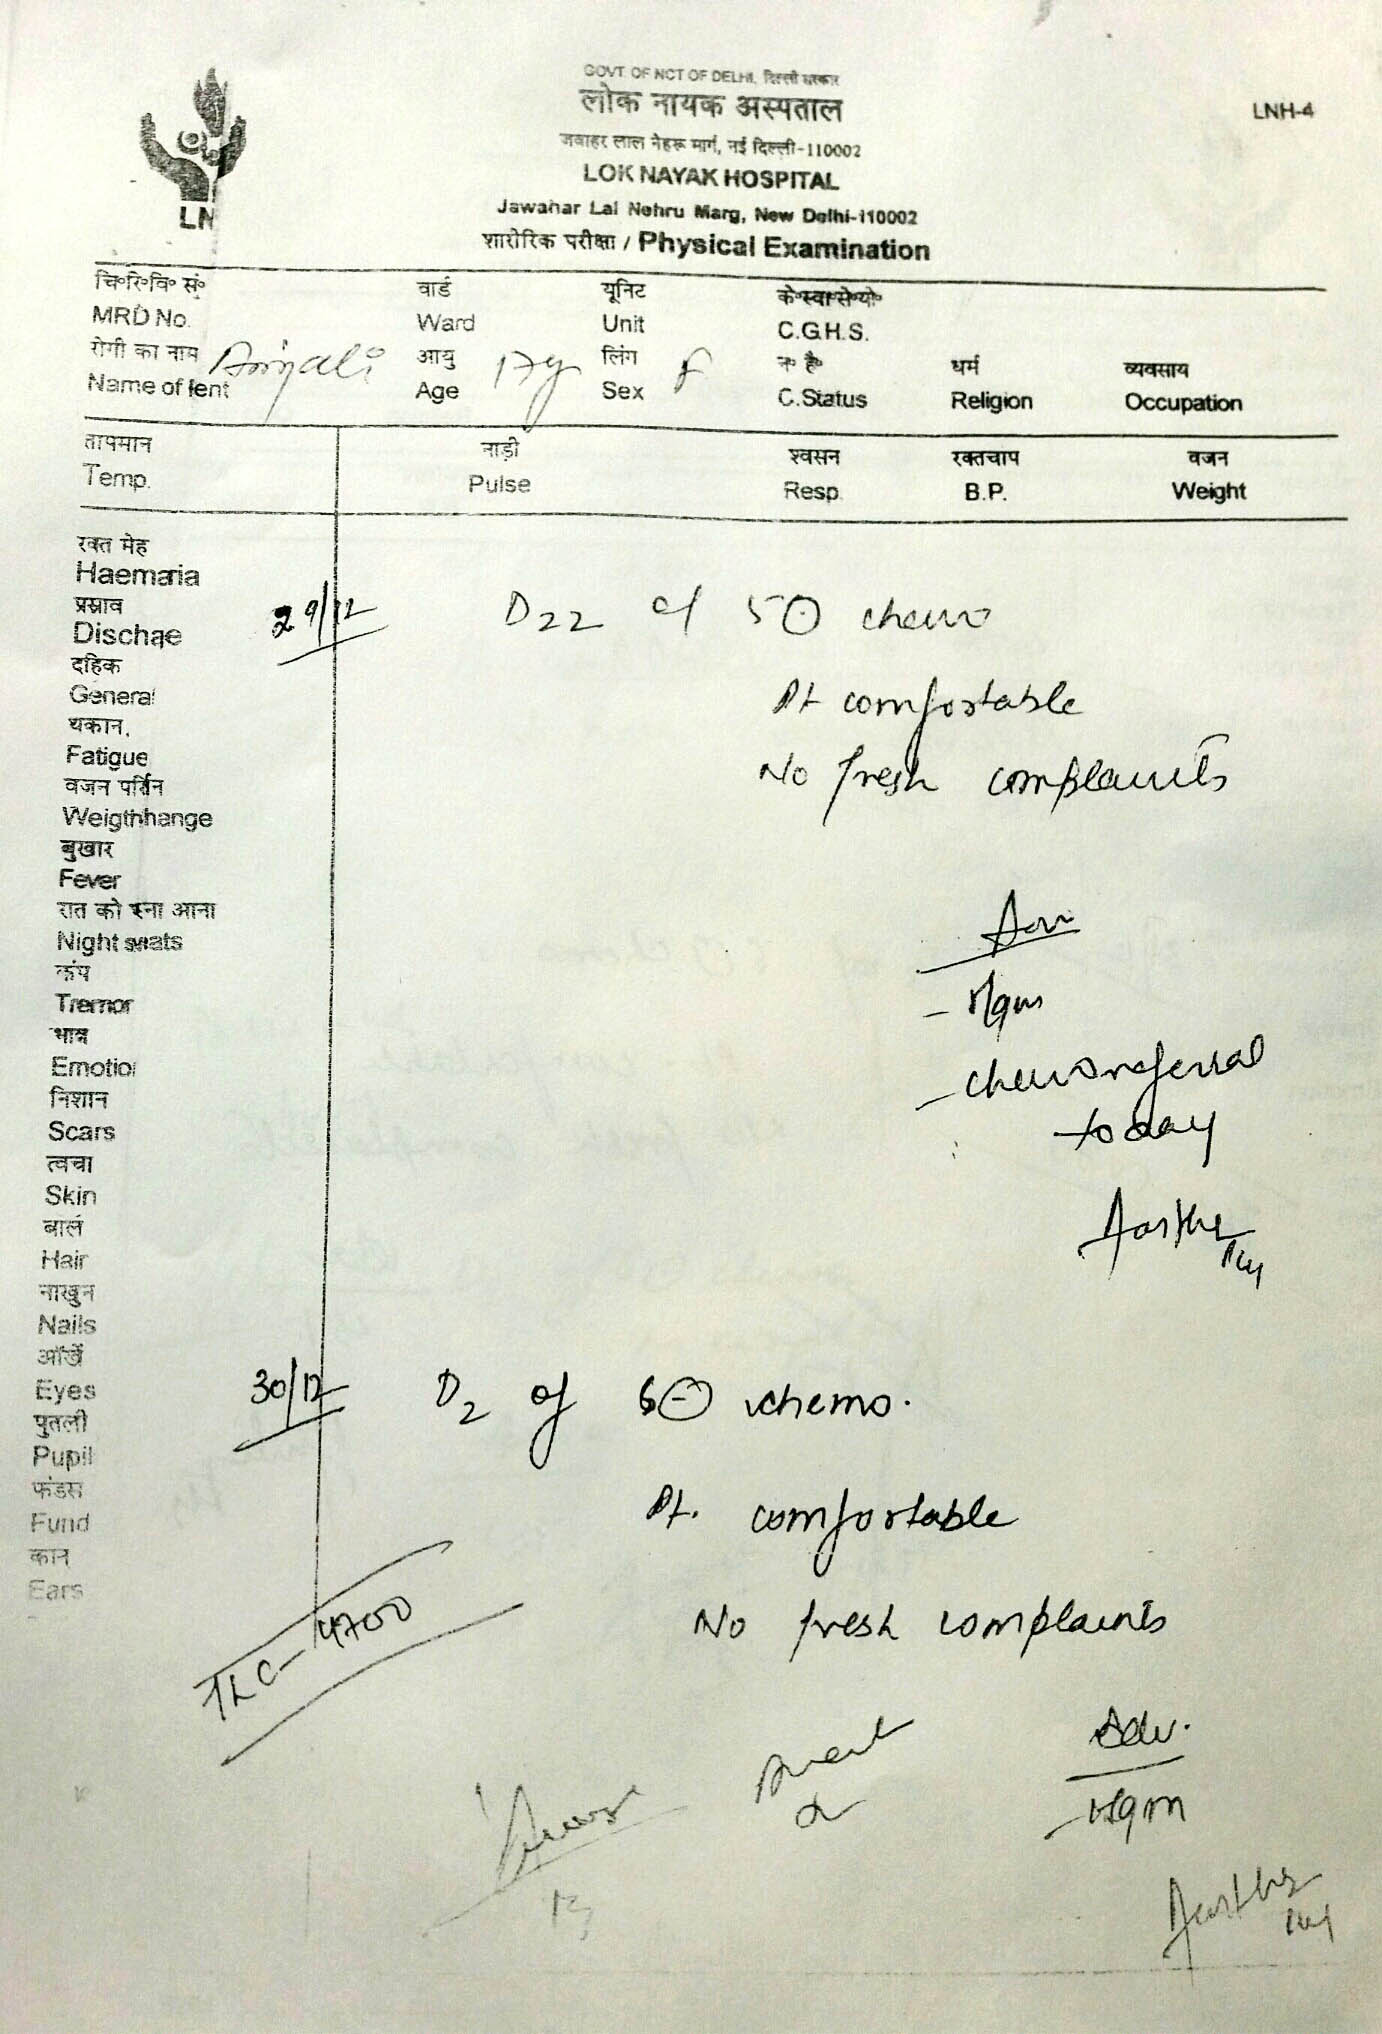 GOVT. OF NCT OF DELHI, दिल्ली सरकार
लोक नायक अस्पताल
LNH-4
जवाहर लाल नेहरू मार्ग, नई दिल्ली-110002
LOK NAYAK HOSPITAL
LN
Jawahar Lal Nehru Marg, New Delhi-110002
शारीरिक परीक्षा / Physical Examination
चि॰रि॰वि॰ सं॰ वार्ड यूनिट के॰स्वा॰से॰यो॰
MRD No. Ward Unit C.G.H.S.
रोगी का नाम Anjali आयु 17y लिंग F न॰ है॰ धर्म व्यवसाय
Name of ient Age Sex C.Status Religion Occupation
तापमान नाड़ी श्वसन रक्तचाप वजन
Temp. Pulse Resp. B.P. Weight
रक्त मेह
Haemaria
प्रस्राव
29/12 D22 of 5 chemo
Dischae
दहिक
General
Pt comfortable
थकान,
Fatigue
No fresh complaints
वजन
Weigthhange
बुखार
Fever
रात को आना
Night swats
कंप
Tremor
Emotio
निशान
- chemo referral
Scars
today
त्वचा
Skin
बाल
Hair
नाखुन
Nails
आँखें
Eyes
30/12 D2 of 6 chemo.
पुतली
Pupil
फंडस
Fund
Pt. comfortable
कान
Ears
TLC- 4700
No fresh complaints
Adv.